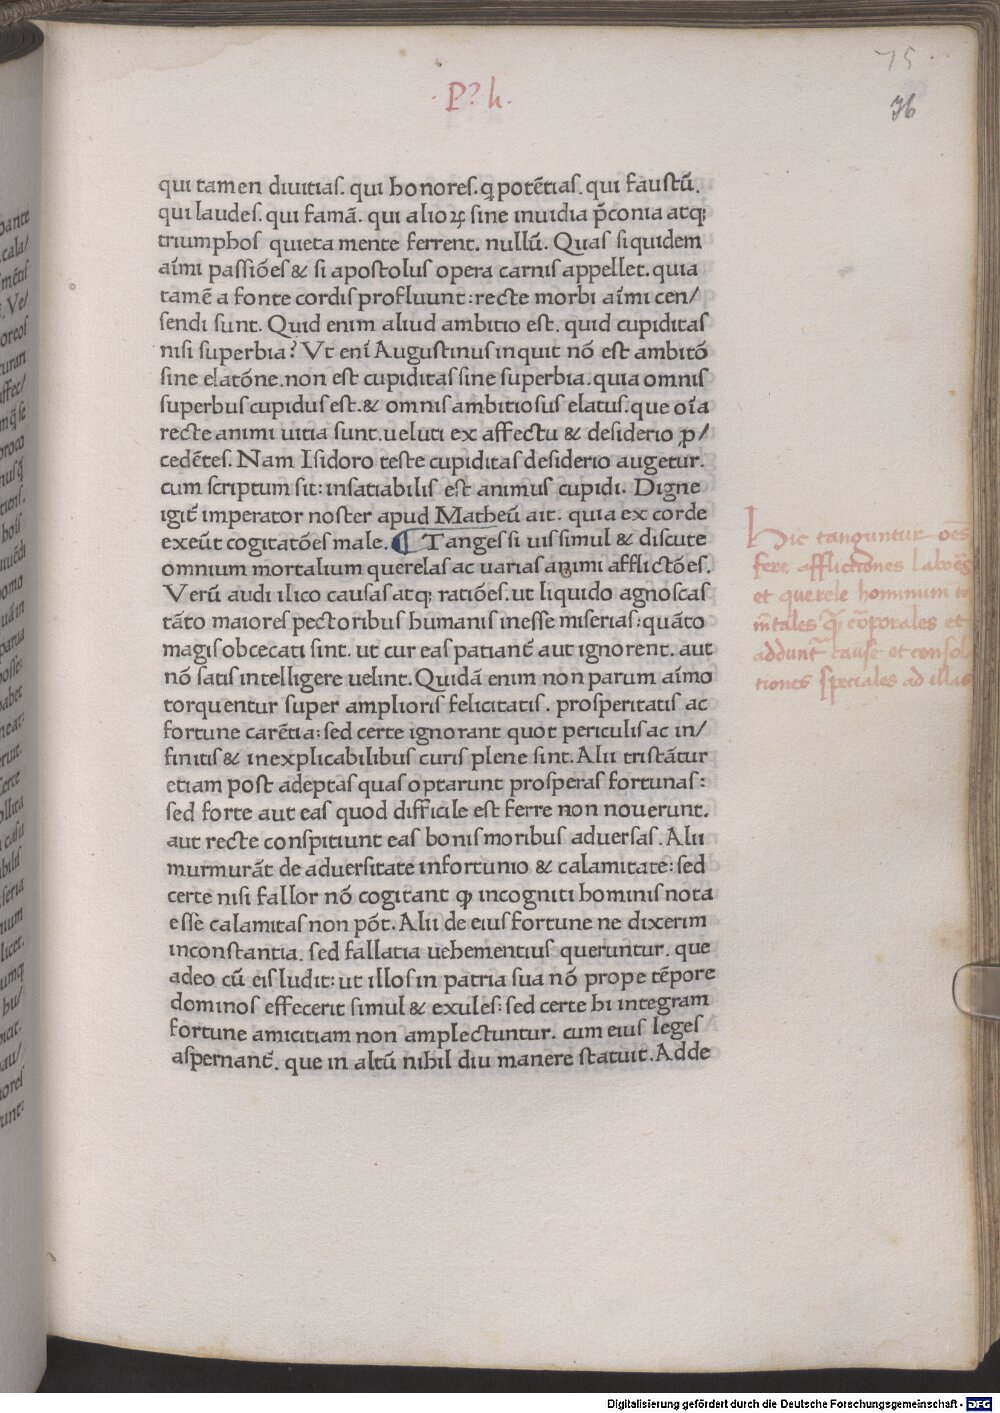 75
76
.Pꝰ h.
qui tamen diuitias. qui honores. q̧ potētias. qui faustū.
qui laudes. qui famā. qui alioꝝ sine inuidia p̄conia atqꝫ
triumphos quieta mente ferrent. nullū. Quas siquidem
aīmi passiōes & si apostolus opera carnis appellet. quia
tamē a fonte cordis profluunt: recte morbi aīmi cen/
sendi sunt. Quid enim aliud ambitio est. quid cupiditas
nisi superbia? Vt enī Augustinus inquit nō est ambitō
sine elatōne. non est cupiditas sine superbia. quia omnis
superbus cupidus est. & omnis ambitiosus elatus. que oīa
recte animi uitia sunt. ueluti ex affectu & desiderio ꝓ/
cedētes. Nam Isidoro teste cupiditas desiderio augetur.
cum scriptum sit: insatiabilis est animus cupidi. Digne
igit̄ imperator noster apud Matheū ait. quia ex corde
exeūt cogitatōes male. ¶ Tanges si uis simul & discute
omnium mortalium querelas ac uarias animi afflictōes.
Verū audi ilico causas atqꝫ ratiōes. ut liquido agnoscas
tāto maiores pectoribus humanis inesse miserias: quāto
magis obcecati sint. ut cur eas patiant̄ aut ignorent. aut
nō satis intelligere uelint. Quidā enim non parum aīmo
torquentur super amplioris felicitatis. prosperitatis ac
fortune carētia: sed certe ignorant quot periculis ac in/
finitis & inexplicabilibus curis plene sint. Alii tristātur
etiam post adeptas quas optarunt prosperas fortunas:
sed forte aut eas quod difficile est ferre non nouerunt.
aut recte conspitiunt eas bonis moribus aduersas. Alii
murmurāt de aduersitate infortunio & calamitate: sed
certe nisi fallor nō cogitant ꝙ incogniti hominis nota
esse calamitas non pōt. Alii de eius fortune ne dixerim
inconstantia. sed fallatia uehementius queruntur. que
adeo cū eis ludit: ut illos in patria sua nō prope tēpore
dominos effecerit simul & exules: sed certe hi integram
fortune amicitiam non amplectuntur. cum eius leges
aspernant̄. que in altū nihil diu manere statuit. Adde
Hic tanguntur oēs
fere afflictiones
et querele hominum
mētales quā corporales et
addunt̄ cause et
tiones speciales ad illas
Digitalisierung gefördert durch die Deutsche Forschungsgemeinschaft - DFG